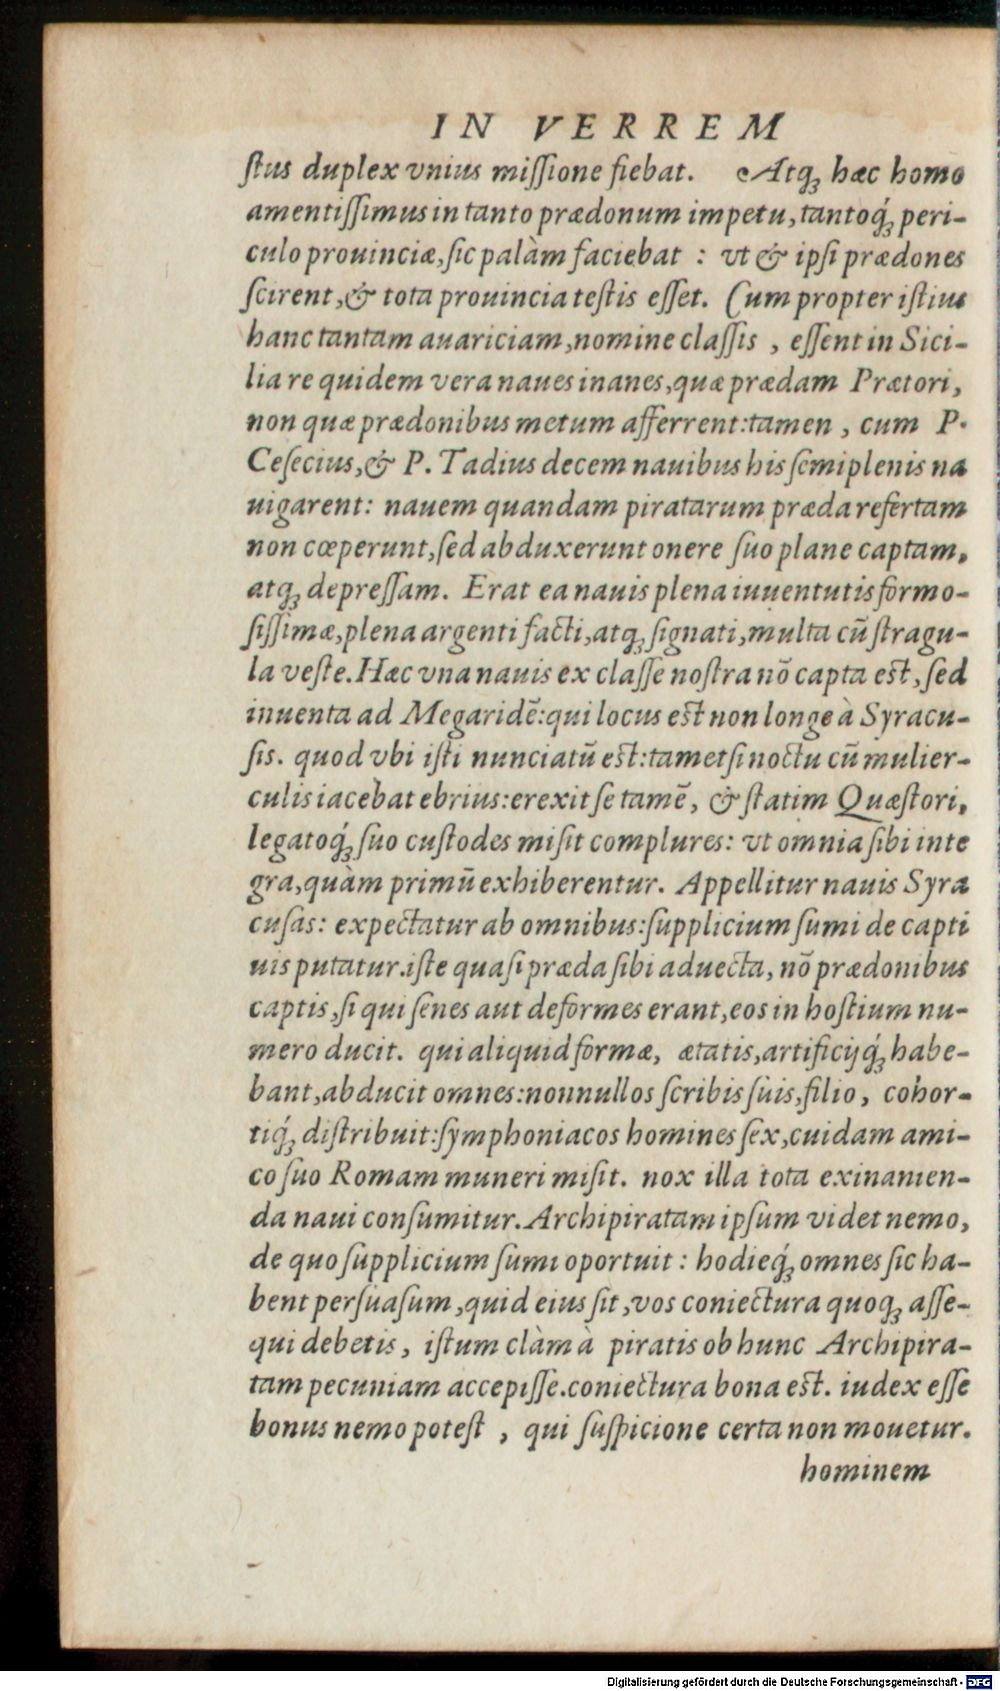 IN VERREM
ſtus duplex vnius miſſione fiebat. Atqꝫ hæc homo
amentiſſimus in tanto prædonum impetu, tantoqꝫ́ peri-
culo prouinciæ, ſic palàm faciebat : vt & ipſi prædones
ſcirent, & tota prouincia teſtis eſſet. Cum propter iſtius
hanc tantam auariciam, nomine claſſis , eſſent in Sici-
lia re quidem vera naues inanes, quæ prædam Prætori,
non quæ prædonibus metum afferrent: tamen , cum P.
Ceſecius, & P. Tadius decem nauibus his ſemiplenis na
uigarent: nauem quandam piratarum præda refertam
non cœperunt, ſed abduxerunt onere ſuo plane captam,
atqꝫ depreſſam. Erat ea nauis plena iuuentutis formo-
ſiſſimæ, plena argenti facti, atqꝫ ſignati, multa cū ſtragu-
la veſte. Hæc vna nauis ex claſſe noſtra nō capta eſt, ſed
inuenta ad Megaridē: qui locus eſt non longe à Syracu-
ſis. quod vbi iſti nunciatū eſt: tametſi noctu cū mulier-
culis iacebat ebrius: erexit ſe tamē, & ſtatim Quæſtori,
legatoqꝫ́ ſuo cuſtodes miſit complures: vt omnia ſibi inte
gra, quàm primū exhiberentur. Appellitur nauis Syra
cuſas: expectatur ab omnibus: ſupplicium ſumi de capti
uis putatur. iſte quaſi præda ſibi aduecta, nō prædonibus
captis, ſi qui ſenes aut deformes erant, eos in hoſtium nu-
mero ducit. qui aliquid formæ, ætatis, artificijqꝫ́ habe-
bant, abducit omnes: nonnullos ſcribis ſuis, filio, cohor-
tiqꝫ́ diſtribuit: ſymphoniacos homines ſex, cuidam ami-
co ſuo Romam muneri miſit. nox illa tota exinanien-
da naui conſumitur. Archipiratam ipſum videt nemo,
de quo ſupplicium ſumi oportuit : hodieqꝫ́ omnes ſic ha-
bent perſuaſum, quid eius ſit, vos coniectura quoqꝫ aſſe-
qui debetis, iſtum clàm à piratis ob hunc Archipira-
tam pecuniam accepiſſe. coniectura bona eſt. iudex eſſe
bonus nemo poteſt , qui ſuſpicione certa non mouetur.
hominem
Digitalisierung gefördert durch die Deutsche Forschungsgemeinschaft - DFG